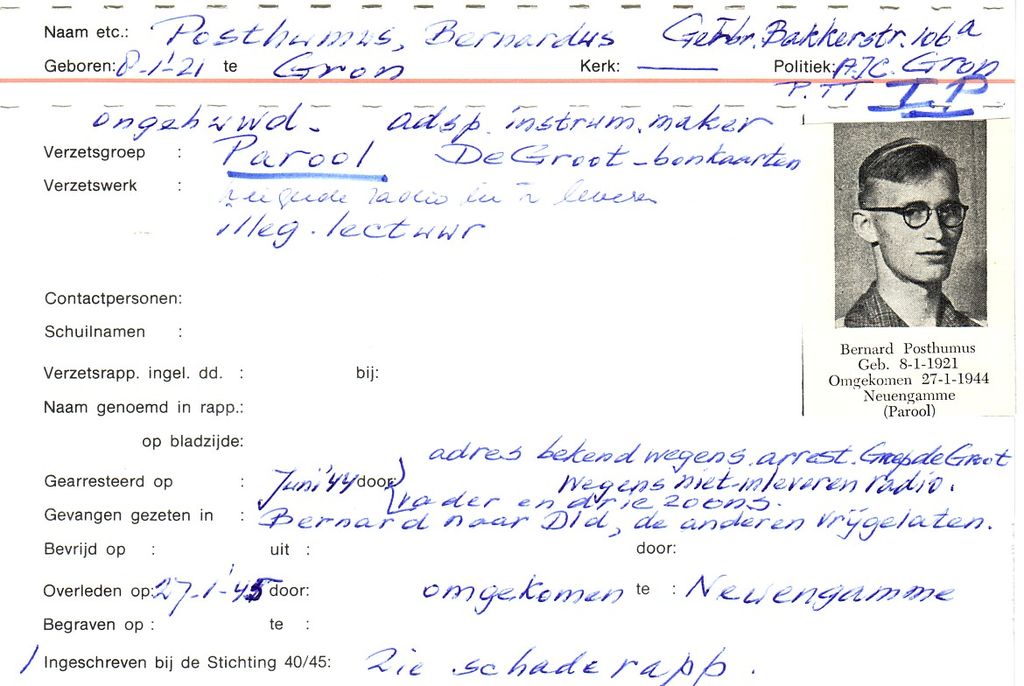 Naam etc.: Posthumus, Bernardus Gebr. Bakkerstr. 106a
Geboren: 8-1-'21 te Gron Kerk: —— Politiek: AJC. Gron
P.TT I.P
ongehuwd. adsp. instrum. maker
Verzetsgroep : Parool De Groot-bonkaarten
Verzetswerk : radio in te leveren
illeg. lectuur
Contactpersonen:
Schuilnamen :
Verzetsrapp. ingel. dd. : bij:
Naam genoemd in rapp.:
op bladzijde:
adres bekend wegens arrest. Groep de Groot
Gearresteerd op : Juni '44 door: wegens niet-inleveren radio.
vader en drie zoons.
Gevangen gezeten in : Bernard naar Dld, de anderen vrijgelaten.
Bevrijd op : uit : door:
Overleden op: 27-1-'45 door: omgekomen te : Neuengamme
Begraven op : te :
/ Ingeschreven bij de Stichting 40/45: Zie schaderapp.
Bernard Posthumus
Geb. 8-1-1921
Omgekomen 27-1-1944
Neuengamme
(Parool)